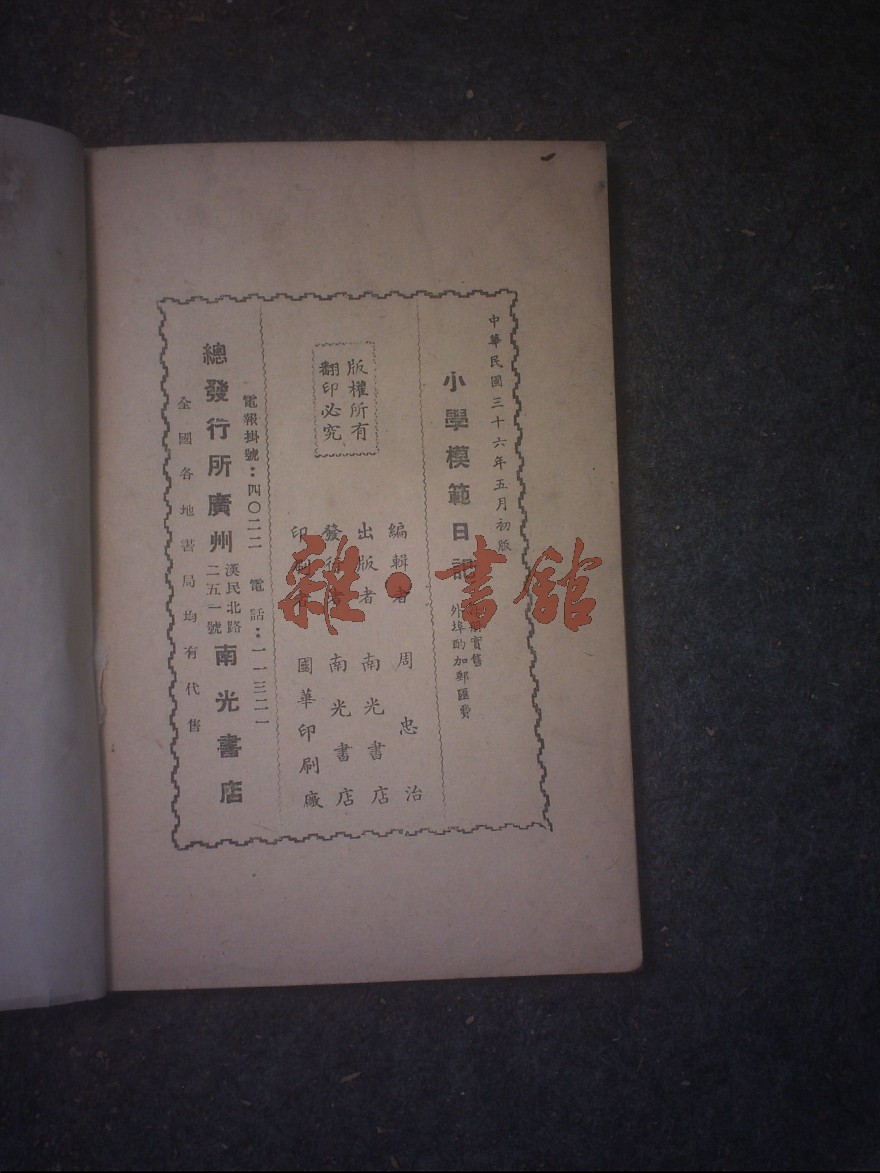 中華民國三十六年五月初版
小學模範日記
實售
外埠酌加郵匯費
版權所有
翻印必究
編輯者 周忠治
出版者 南光書店
發行者 南光書店
印刷者 國華印刷廠
電報掛號：四〇二二 電話：一一三二一
總發行所廣州 漢民北路
二五一號 南光書店
全國各地書局均有代售
雜·書館